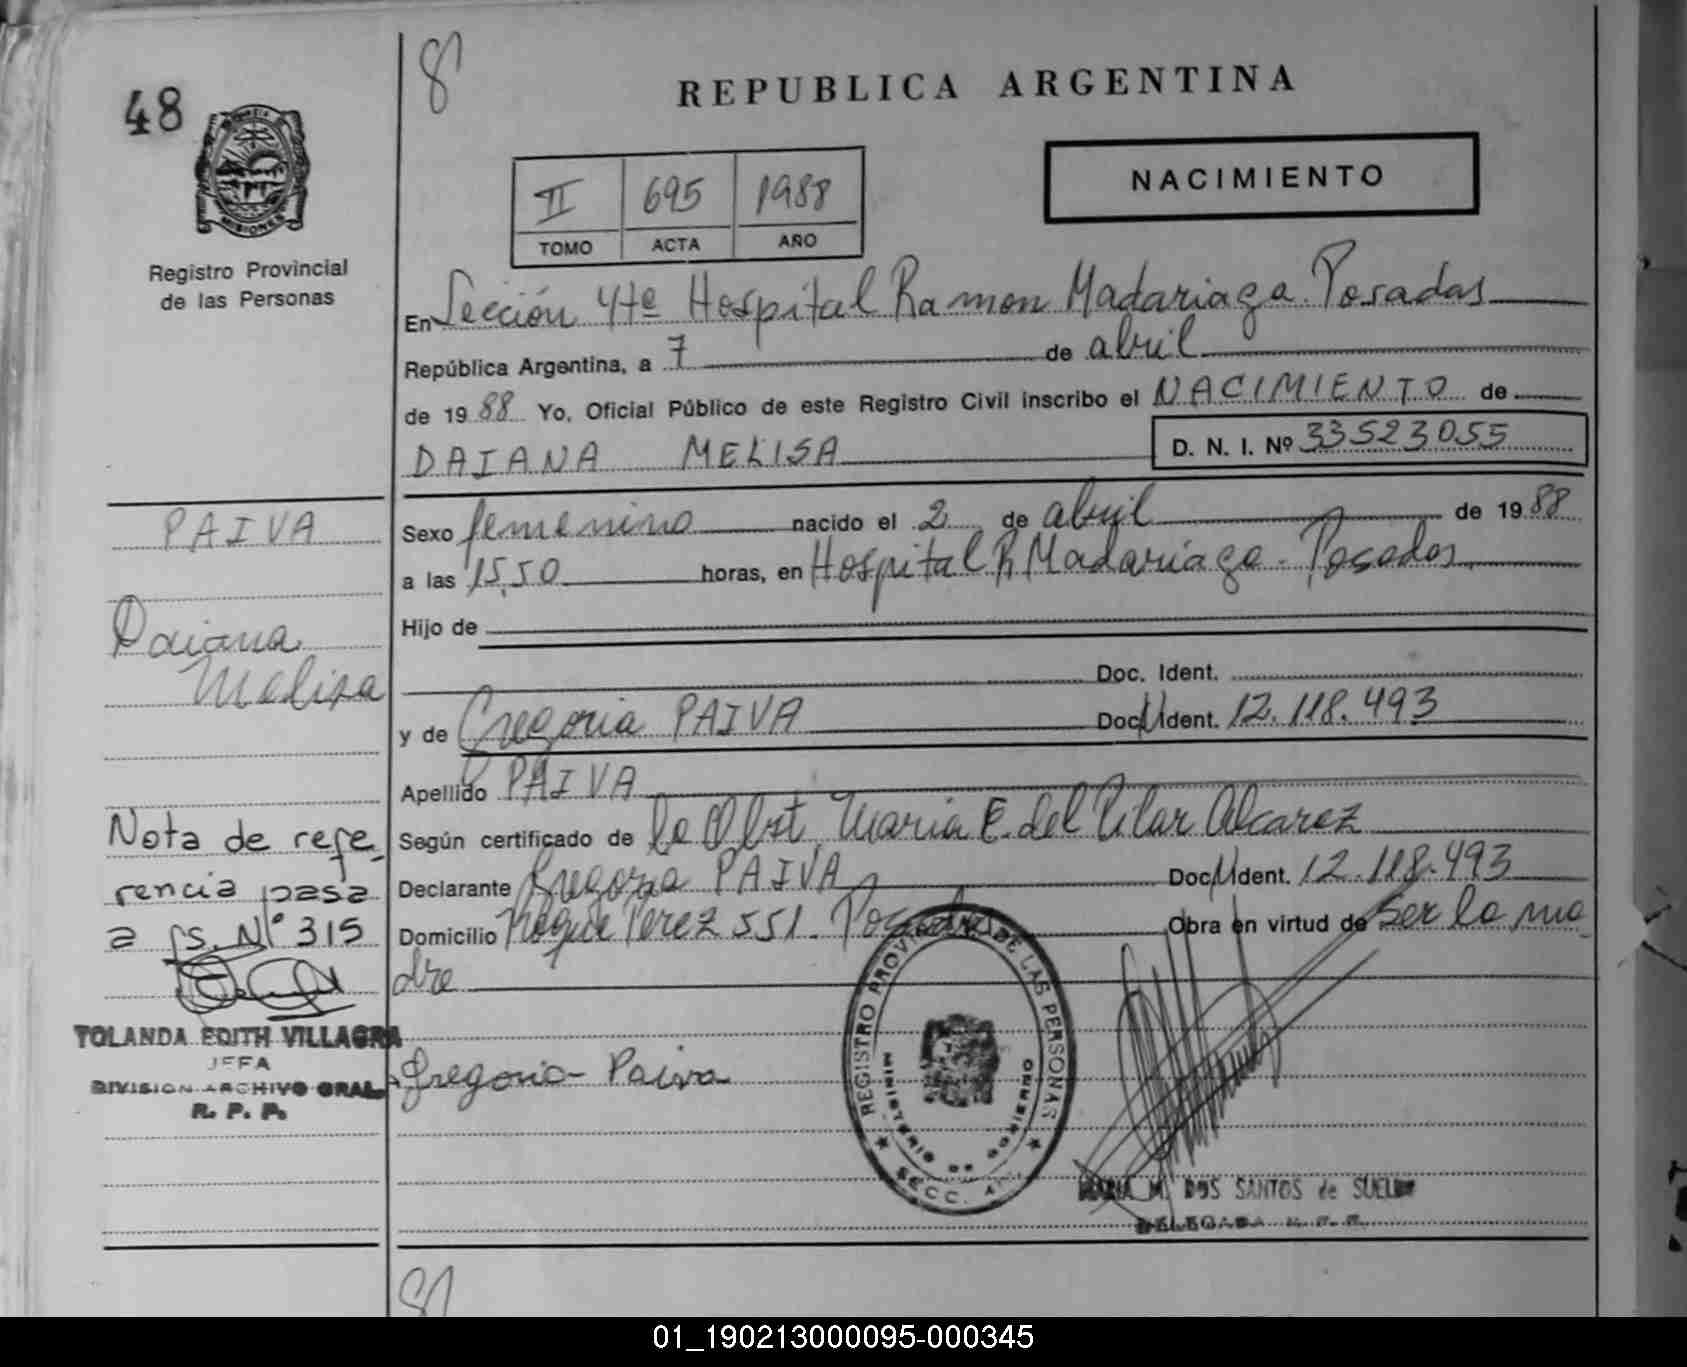 48
8
REPUBLICA ARGENTINA
NACIMIENTO
II 695 1988
TOMO ACTA AÑO
MISIONES
Registro Provincial
de las Personas
En Sección 4ta Hospital Ramon Madariaga. Posadas
República Argentina, a 7 de abril
de 1988 Yo, Oficial Público de este Registro Civil inscribo el NACIMIENTO de
DAIANA MELISA D. N. I. Nº 33523055
Sexo femenino nacido el 2 de abril de 1988
a las 15,50 horas, en Hospital R. Madariaga - Posadas
Hijo de
Doc. Ident.
y de Gregoria PAIVA Doc. Ident. 12.118.493
Apellido PAIVA
Según certificado de la Obst. Maria E. del Pilar Alcarez
Declarante Gregoria PAIVA Doc. Ident. 12.118.493
Domicilio Roque Perez 551. Posadas Obra en virtud de ser la ma
dre
Gregoria Paiva
PAIVA
Daiana
Melisa
Nota de refe-
rencia pasa
a fs. Nº 315
YOLANDA EDITH VILLAGRA
JEFA
DIVISION ARCHIVO GRAL.
R. P. P.
REGISTRO PROVINCIAL DE LAS PERSONAS
MINISTERIO DE GOBIERNO
SECC. 4
MARIA M. DOS SANTOS de SUELDO
DELEGADA R. P. P.
01_190213000095-000345